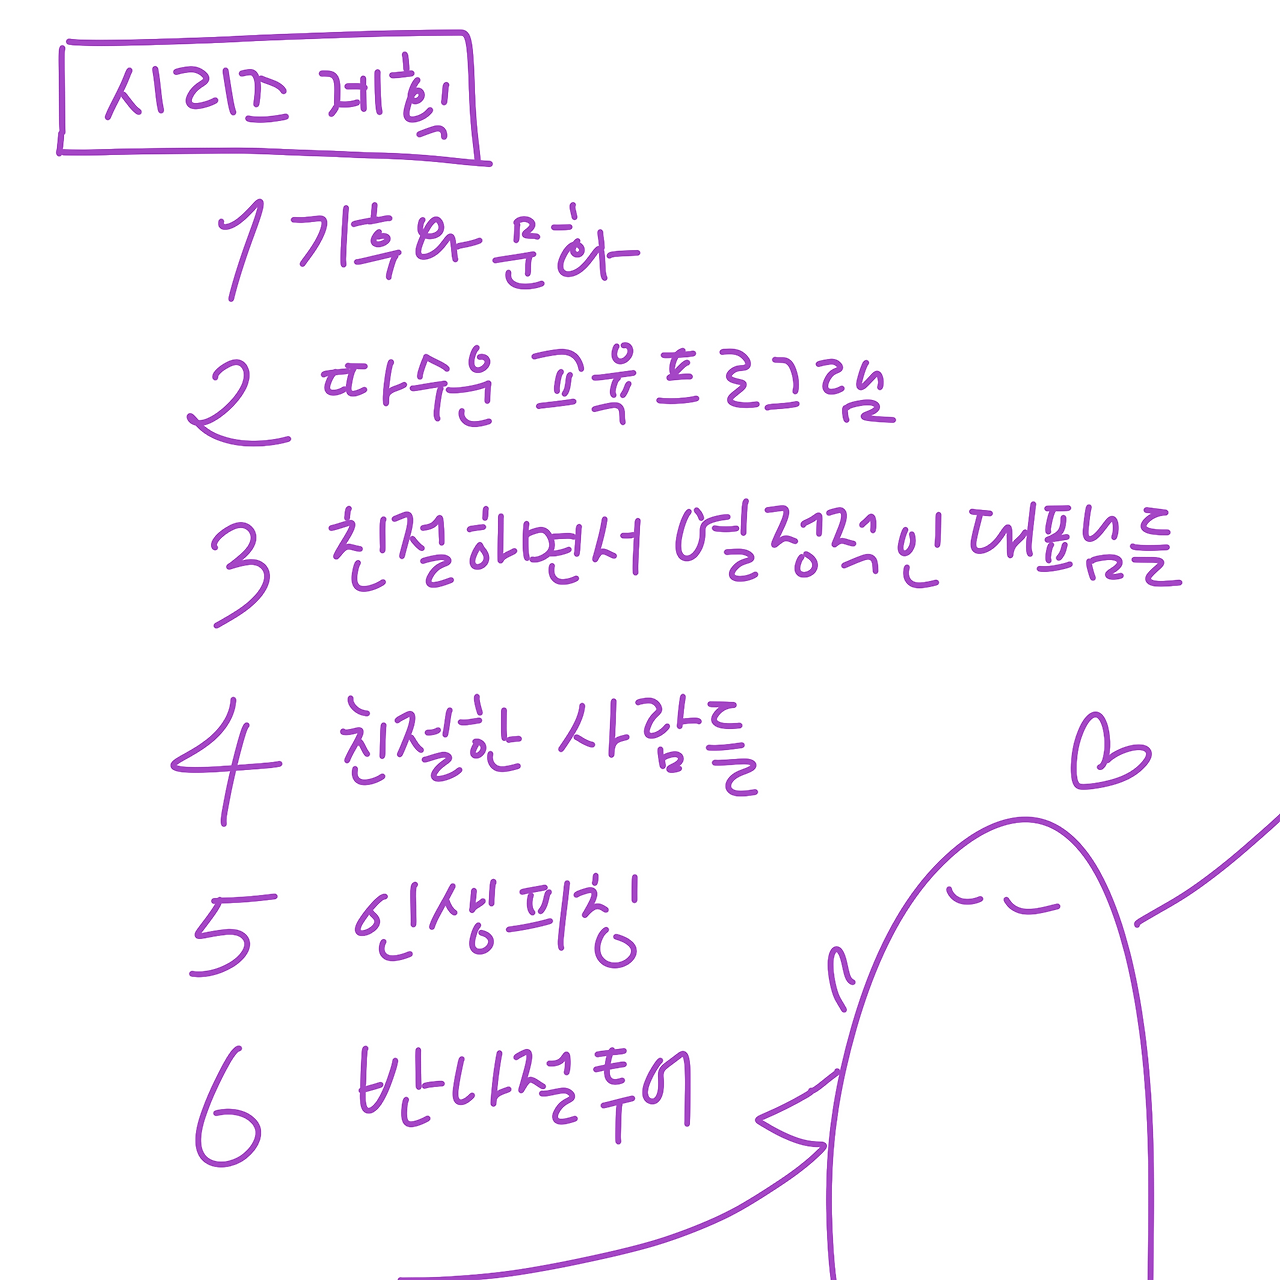 시리즈 계획
1 기후와 문화
2 따수운 교육프로그램
3 친절하면서 열정적인 대표님들
4 친절한 사람들
5 인생피칭
6 반나절투어